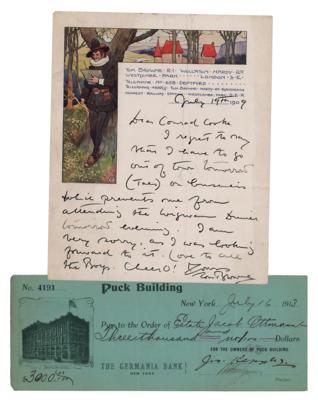 TOM BROWNE · R·I · WOLLATON · HARDY RD
WESTCOMBE · PARK · LONDON · S·E·
July 19th 1909
Dear Conrad Cooke
I regret to say
that I have to go
out of town tomorrow
(Tues) on business
which prevents me from
attending the Wigwam Dinner
tomorrow evening. I am
very sorry, as I was looking
forward to it. Love to all
the Boys. Cheero!
Yours
Tom Browne
No. 4191
Puck Building
New York, July 16 1913
Pay to the Order of Estate Jacob Ottmann
Three thousand no/100 Dollars
FOR THE OWNERS OF PUCK BUILDING
THE GERMANIA BANK
NEW YORK
$3000.00